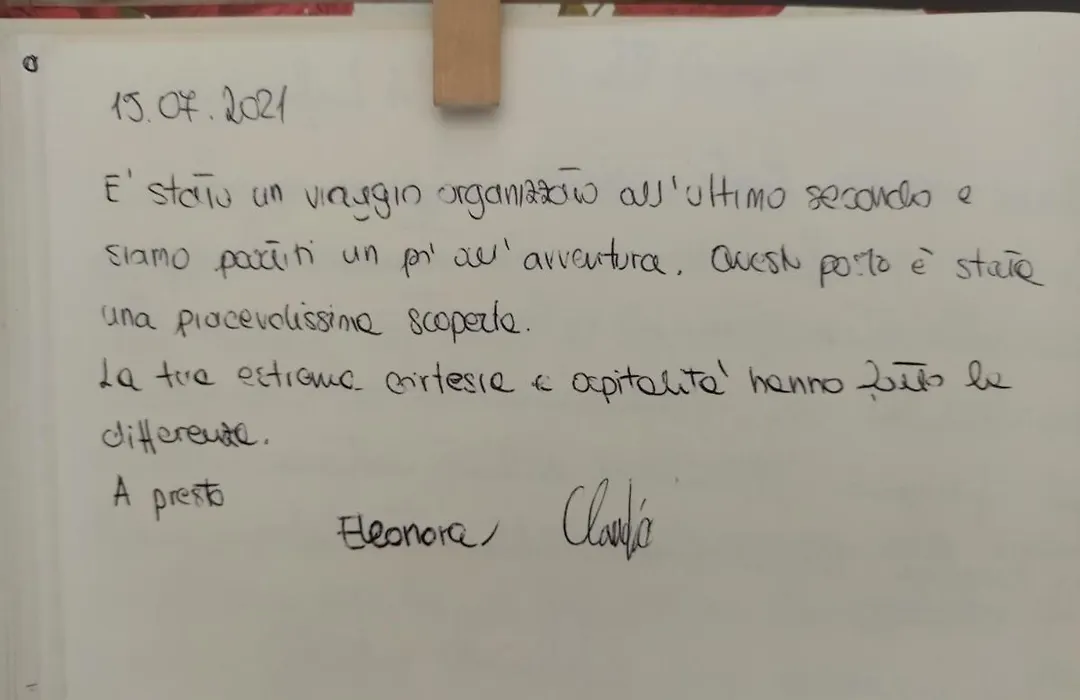 15.07.2021
E' stato un viaggio organizzato all'ultimo secondo e
siamo partiti un po' all'avventura. Questo posto è stata
una piacevolissima scoperta.
La tua estrema cortesia e ospitalità hanno fatto la
differenza.
A presto
Eleonora Claudia